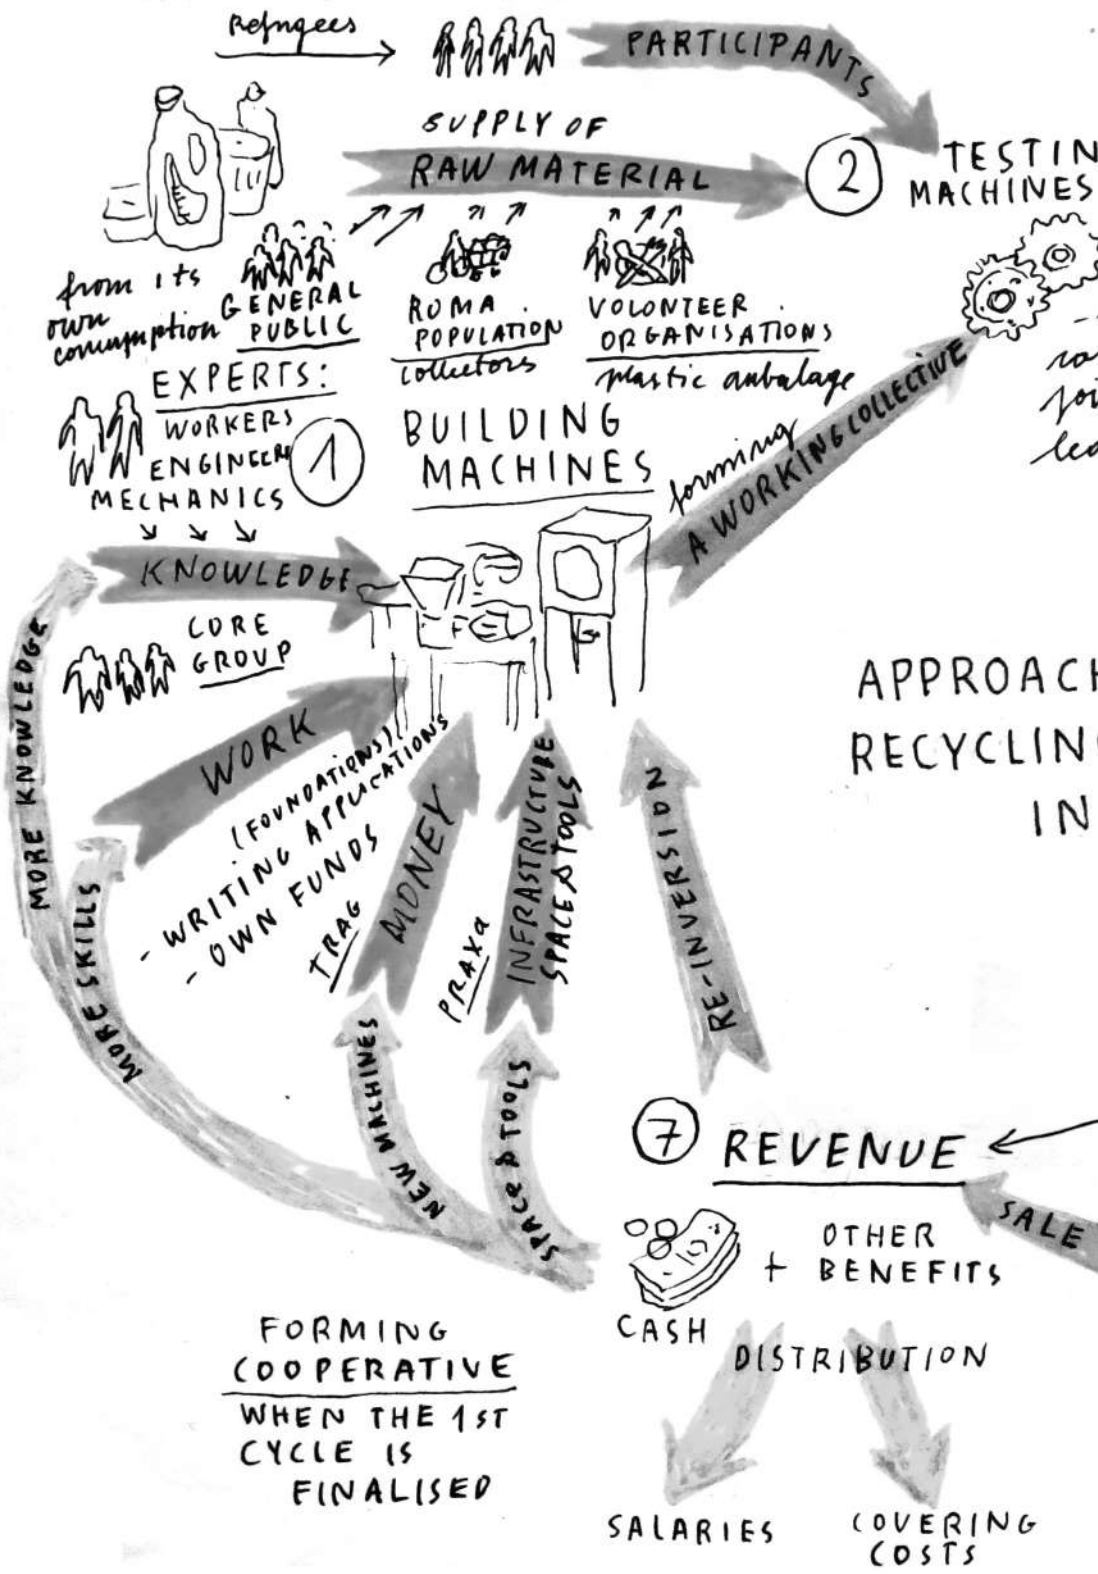 Refugees
PARTICIPANTS
SUPPLY OF
RAW MATERIAL
2
TESTIN
MACHINES
from its
own
consumption
GENERAL
PUBLIC
ROMA
POPULATION
collectors
VOLUNTEER
ORGANISATIONS
plastic ambalage
EXPERTS:
WORKERS
ENGINEERS
MECHANICS
1
BUILDING
MACHINES
forming
A WORKING COLLECTIVE
joi
lea
KNOWLEDGE
CORE
GROUP
WORK
MORE KNOWLEDGE
MORE SKILLS
(FOUNDATIONS)
- WRITING APPLICATIONS
- OWN FUNDS
TRAG
MONEY
PRAXA
INFRASTRUCTURE
SPACE & TOOLS
RE-INVERSION
APPROACH
RECYCLING
IN
NEW MACHINES
SPACE & TOOLS
7
REVENUE
SALE
CASH
+ OTHER
BENEFITS
DISTRIBUTION
SALARIES
COVERING
COSTS
FORMING
COOPERATIVE
WHEN THE 1ST
CYCLE IS
FINALISED